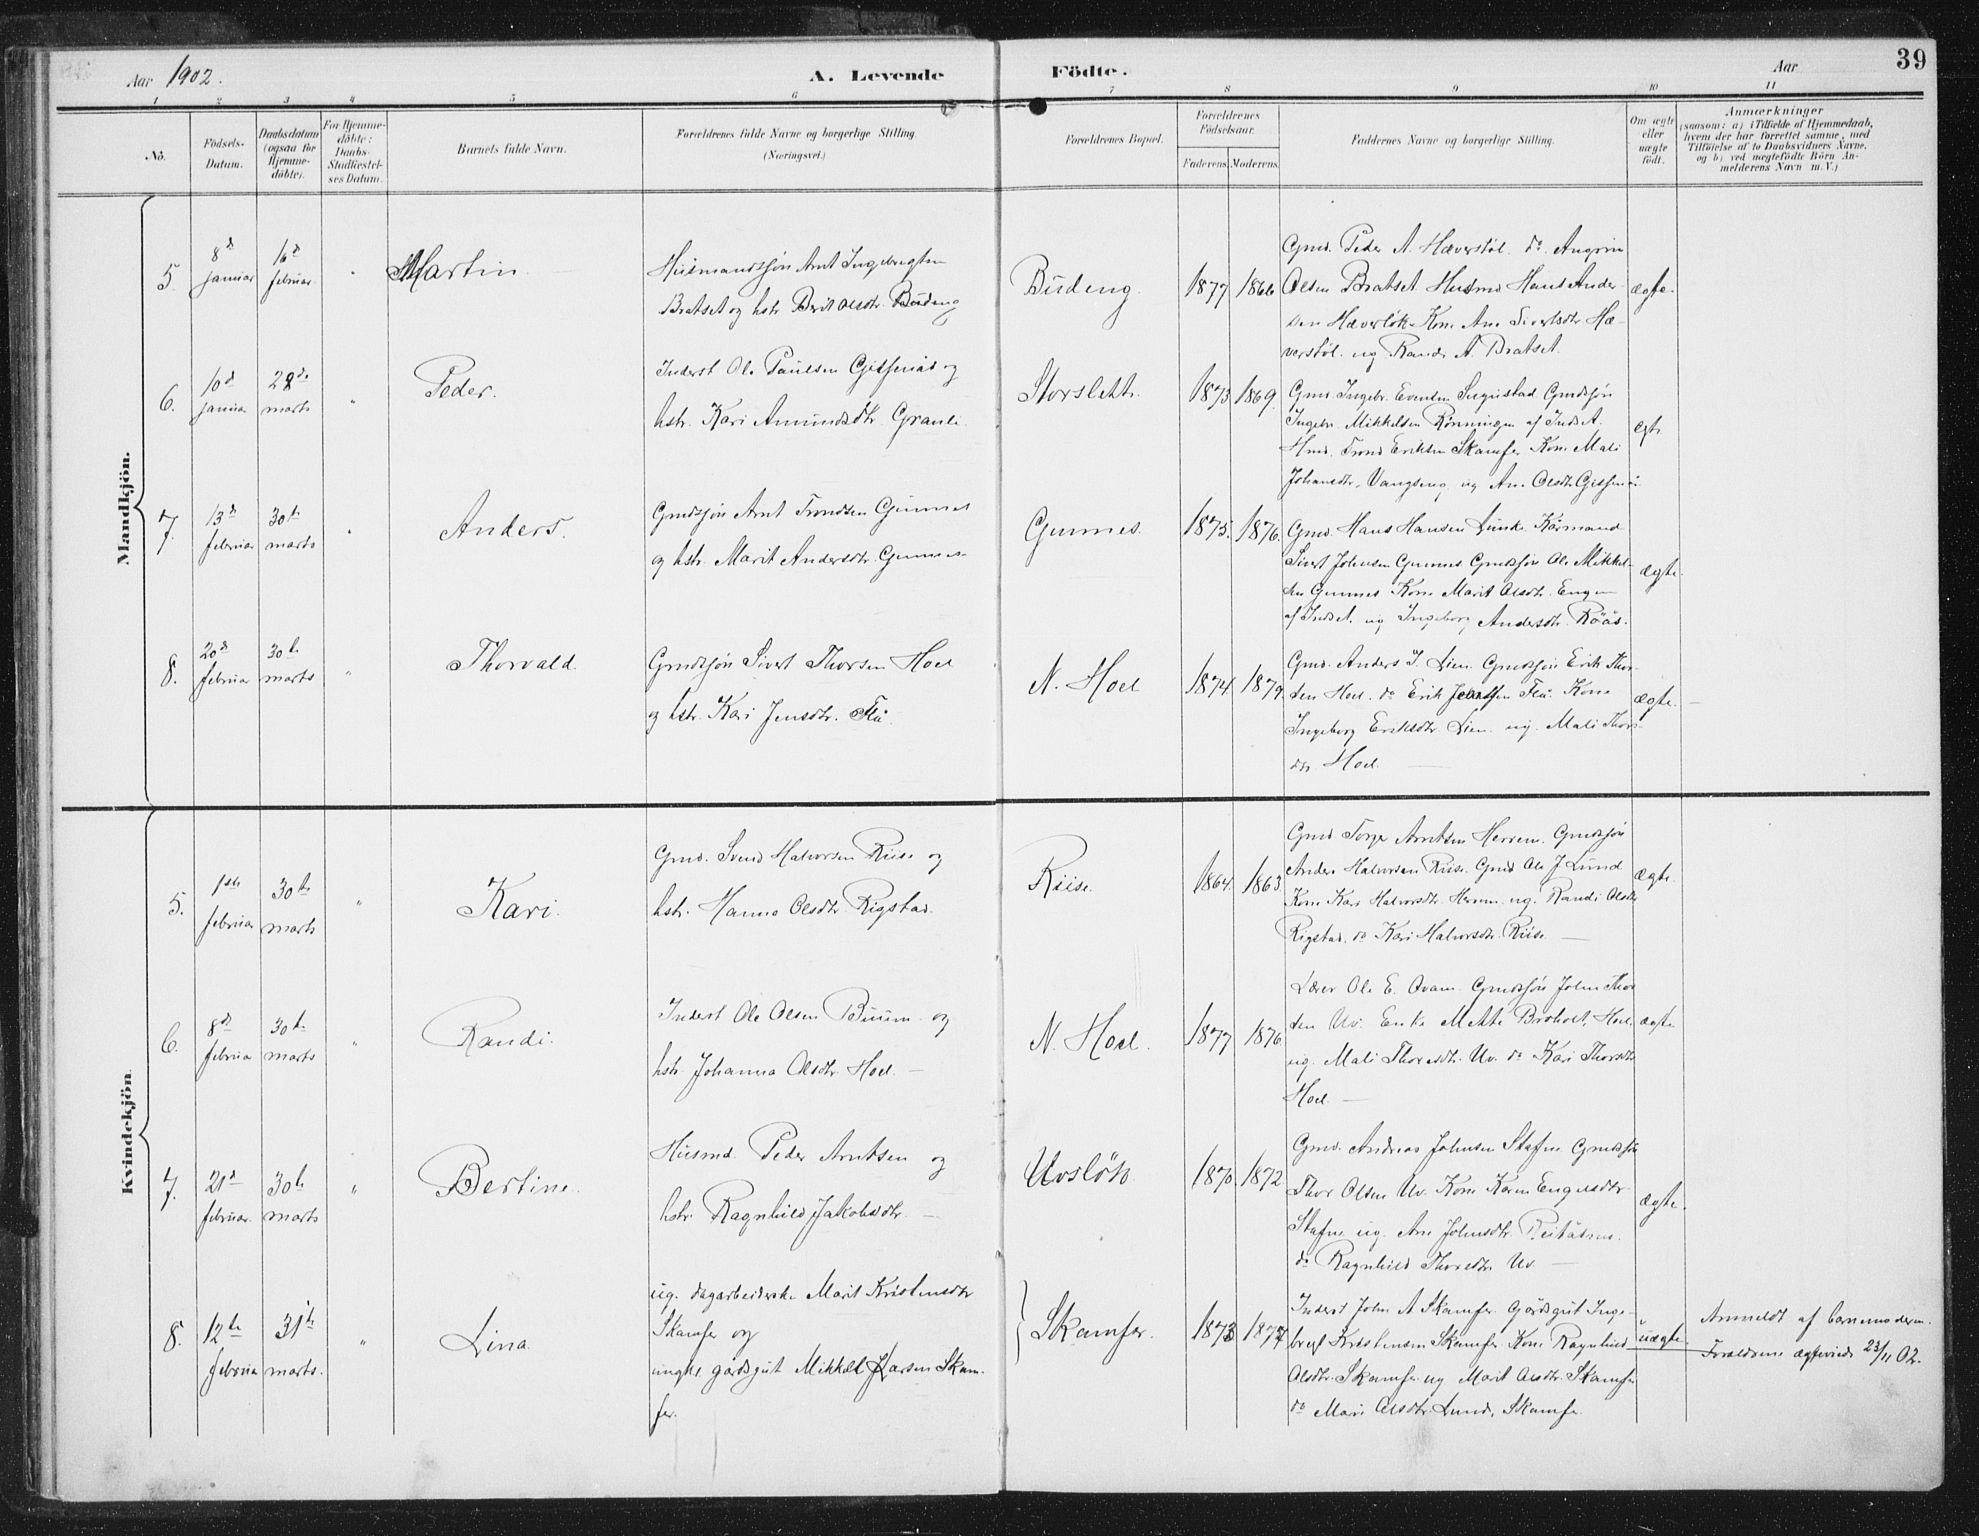 39
Aar 1902.
A. Levende
Födte.
Aar
1 2 3 4 5 6 7 8 9 10 11
No.
Födsels-
Datum.
Daabsdatum
(ogsaa for
Hjemme-
döbte).
For Hjemme-
döbte:
Daabs-
Stadfæstel-
ses Datum.
Barnets fulde Navn.
Forældrenes fulde Navne og borgerlige Stilling.
(Næringsvei.)
Forældrenes Bopæl.
Forældrenes
Födselsaar.
Faderens.
Moderens.
Faddernes Navne og borgerlige Stilling.
Om ægte
eller
uægte
födt.
Anmærkninger
(saasom: a) i Tilfælde af Hjemmedaab,
hvem der har forrettet samme, med
Tilföielse af to Daabsvidners Navne,
og b) ved uægtefödte Börn An-
melderens Navn m. V.)
Mandkjön.
5. 8d januar 16d februar " Martin
Husmandssjön Arnt Ingebrigtsen
Bratset og hstr Berit Olsdtr. Búdeng
Búdeng. 1877 1866
Gmd. Peder A. Hæverstöl. do
Olsen Bratset Husmd Hans Ander-
sen Hæverlök Kone Ane Sivertsdtr Hæ-
verstöl. ug Randi A. Bratset.
ægte.
6. 10d januar 28de marts " Peder.
Inderst Ole Paulsen Gisnaas og
hstr. Kari Amundsdtr. Granli.
Storslett. 1873 1869.
Gmd. Ingebr. Evensen Gmdsjön
Ingebr. Mikkelsen Rönningen af Indset.
Hmd. Trond Eriksen Skamfer Kone Mali
Johansdtr. Vangseng ug Ane Olsdtr
ægte
7. 13d februar 30te marts " Anders.
Gmdsjön Arnt Trondsen Gunnes
og hstr. Marit Andersdtr. Gunnes
Gunnes. 1875. 1876.
Gmd. Hans Hansen Kaarmand
Sivert Johnsen Gunnes Gmdsjön Ole Mikkel-
sen Gunnes Kone Marit Olsdtr. Engen
af Indset. ug Ingeborg Andersdtr. Röaas.
ægte.
8. 20de februar 30te marts " Thorvald.
Gmdsjön Sivert Thorsen Hoel
og hstr. Kari Jensdtr. Flå.
N. Hoel 1874. 1879.
Gmd. Anders J. Lien. Gmdsjön Erik Thor-
sen Hoel. do Erik Flå. Kone
Ingeborg Eriksdtr. Lien. ug. Mali Thors-
dtr Hoel. —
ægte. —
Kvindekjön.
5. 1ste februar 30te marts " Kari.
Gmd. Svend Halvorsen Riise og
hstr. Hanna Olsdtr. Rigstad.
Riise. 1864. 1863.
Gmd Torger Arntsen Herrem. Gmdsjön
Anders Halvorsen Riise. Gmd Ole J Lund
Kone Kari Halvorsdtr. Herrem. ug. Randi Olsdtr
Rigstad. do Kari Halvorsdtr. Riise. —
ægte.
6. 8d februar 30te marts " Randi.
Inderst Ole Olsen Buum. og
hstr. Johanna Olsdtr. Hoel. —
N. Hoel. 1877 1876.
Lærer Ole E. Qvam. Gmdsjön John Thor
sen Uv. Enke Mette Hoel.
ug. Mali Thorsdtr. Uv. do Kari Thorsdtr
Hoel. —
ægte
7. 21d februar. 30te marts " Bertine.
Husmd. Peder Arntsen og
hstr. Ragnhild Jakobsdtr. —
Uvslök 1870. 1872
Gmd. Andreas Johnsen Stafne Gmdsjön
Thor Olsen Uv. Kone Karen Engelsdtr.
Stafne ug. Ane Johnsdtr.
do Ragnhild Thorsdtr Uv. —
ægte.
8. 12te februar 31te marts. " Lina.
ug. dagarbeiderske Marit Kristensdtr
Skamfer og
ungk. gårdsgut Mikkel Larsen Skam-
fer.
Skamfer. 1873 1877
Inderst John A Skamfer. Gårdsgut Inge-
brigt Kristensen Skamfer. Kone Ragnhild
Olsdtr. Skamfer ug Marit Olsdtr. Skamfer
do Mari Olsdtr. Lund, Skamfer.
uægte
Anmeldt af barnemoderen.
Forældrene ægteviede 23/11 02.